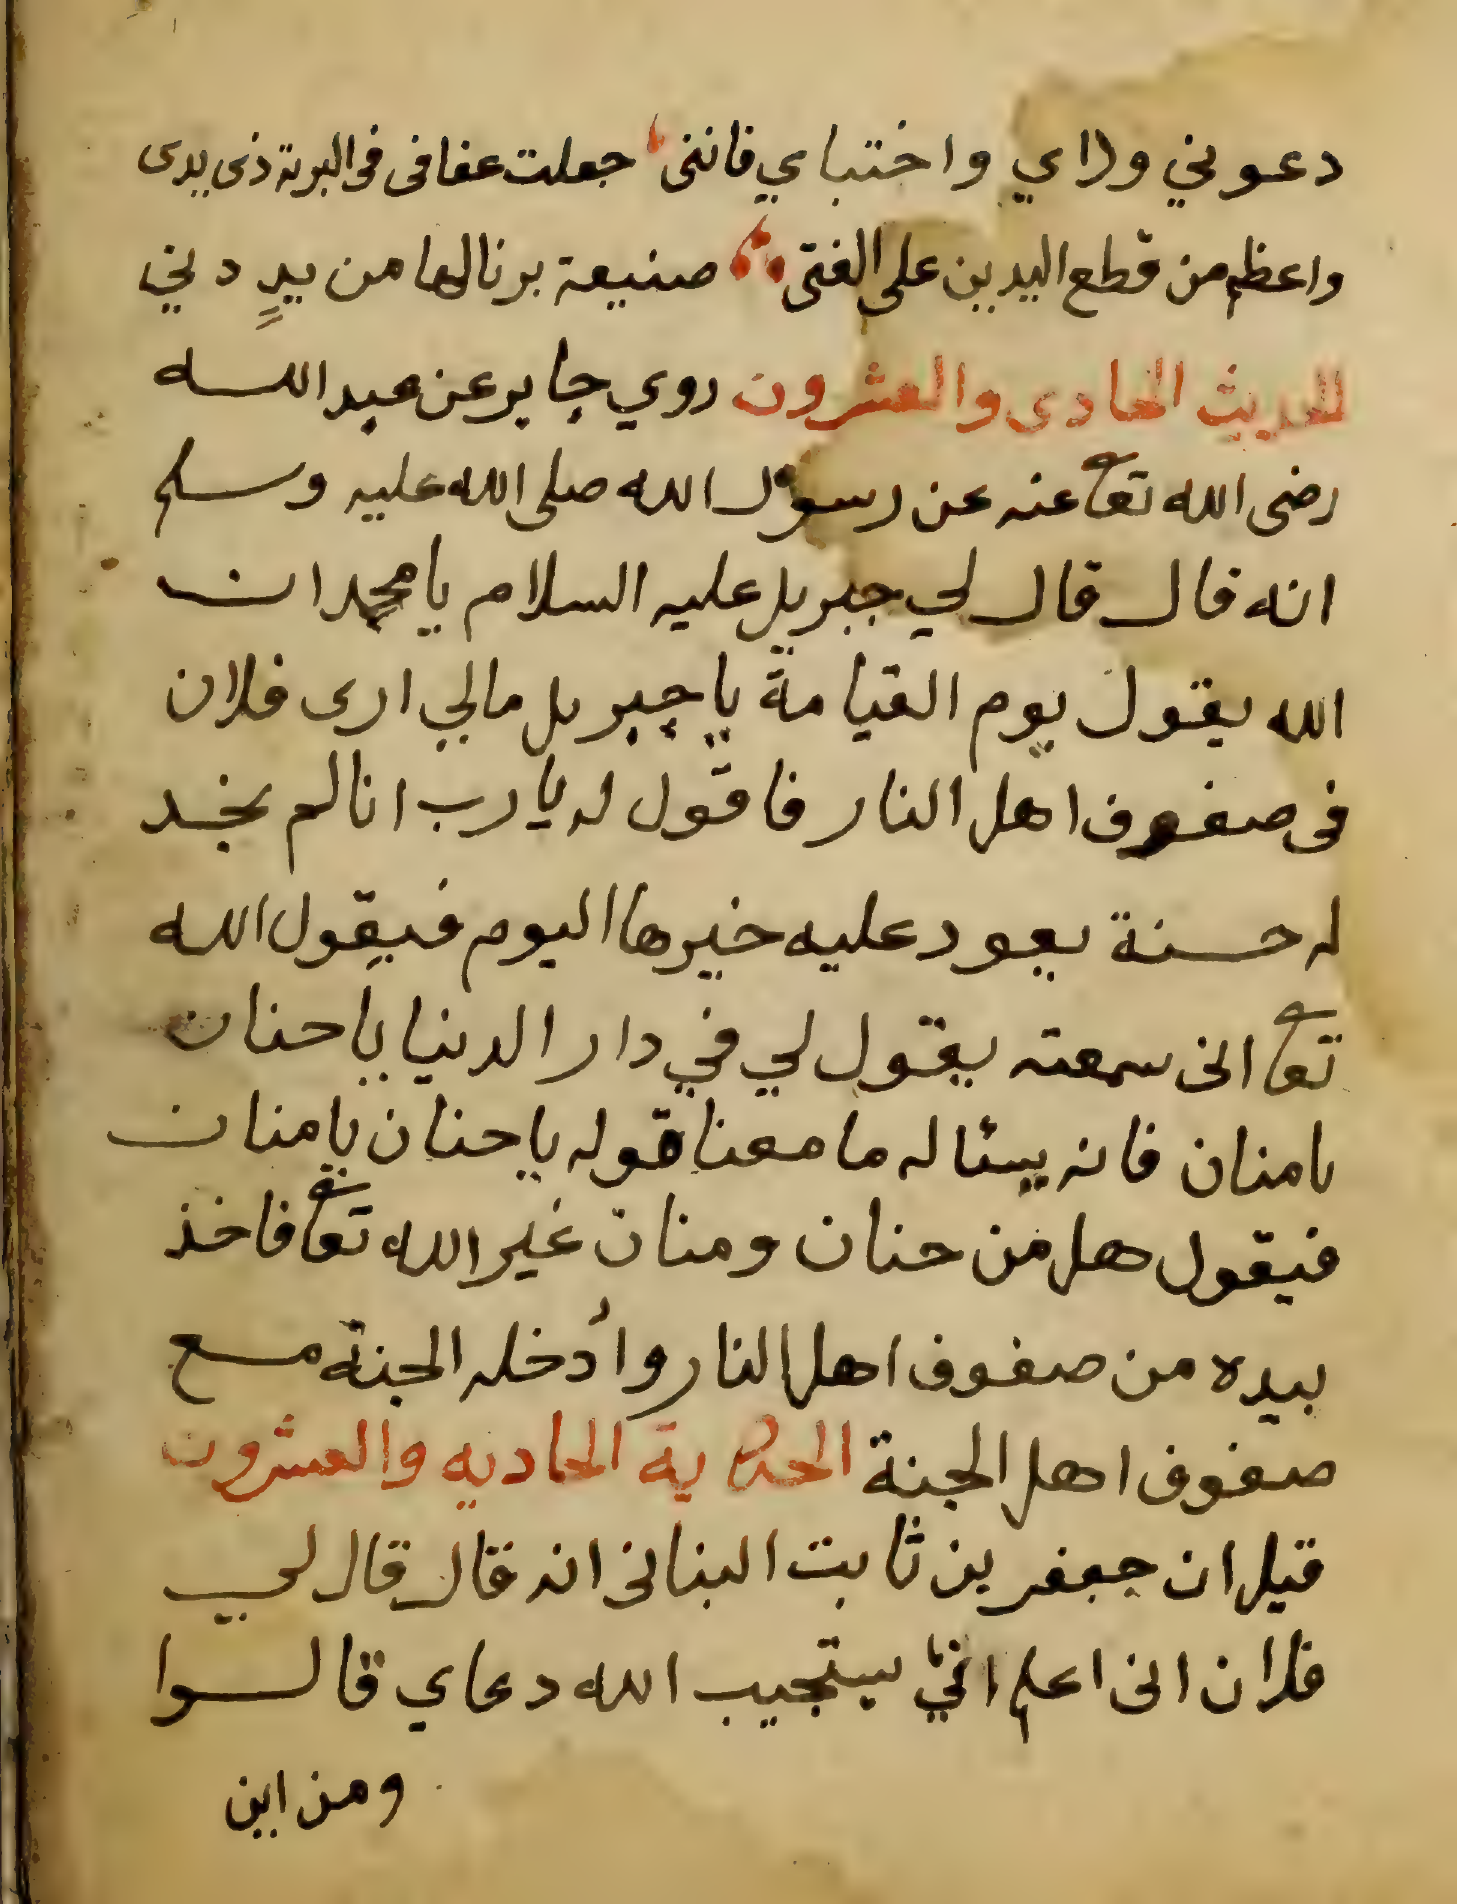 دعوني وراي واختباي فانني جعلت عفافى فى البرية ذى يدى
واعظم من قطع اليدين على الفتى صنيعة برنالها من يدٍ دني
الحديث الحادى والعشرون روي جابر عن عبد الله
رضى الله تعا عنه عن رسول الله صلى الله عليه وسلم
انه قال قال لي جبريل عليه السلام يا محمد ان
الله يقول يوم القيامة يا جبريل مالي ارى فلان
فى صفوف اهل النار فاقول له يا رب انا لم نجد
له حسنة يعود عليه خيرها اليوم فيقول الله
تعا انى سمعته يقول لي في دار الدنيا يا حنان
يا منان فانه يسئاله ما معنا قوله يا حنان يا منان
فيقول هل من حنان ومنان غير الله تعا فاخذ
بيده من صفوف اهل النار وأدخله الجنة مع
صفوف اهل الجنة الحكاية الحاديه والعشرون
قيل ان جعفر بن ثابت البنانى انه قال قال لي
فلان انى اعلم انيّ يستجيب الله دعاي قالوا
ومن اين